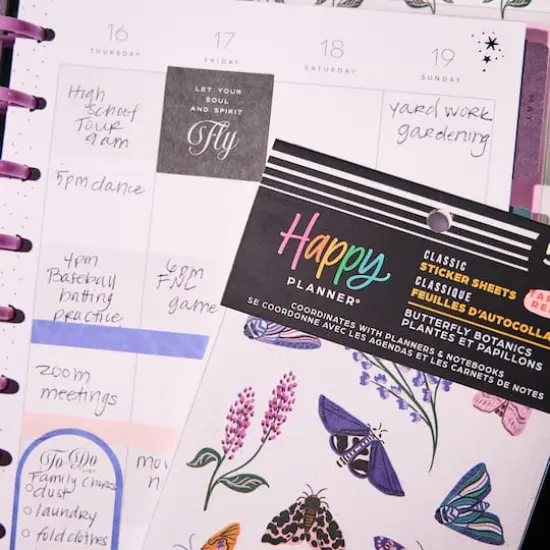 16
THURSDAY
17
FRIDAY
18
SATURDAY
19
SUNDAY
High
School
Tour
9am
LET YOUR
SOUL
AND SPIRIT
Fly
yard work
gardening
5pm dance
4pm
Baseball
batting
practice
6pm
FNL
game
zoom
meetings
To Do
Family Chores
dust
laundry
fold clothes
mov
n
MAY
Happy
PLANNER®
CLASSIC
STICKER SHEETS
CLASSIQUE
FEUILLES D'AUTOCOLLA
BUTTERFLY BOTANICS
PLANTES ET PAPILLONS
COORDINATES WITH PLANNERS & NOTEBOOKS
SE COORDONNE AVEC LES AGENDAS ET LES CARNETS DE NOTES